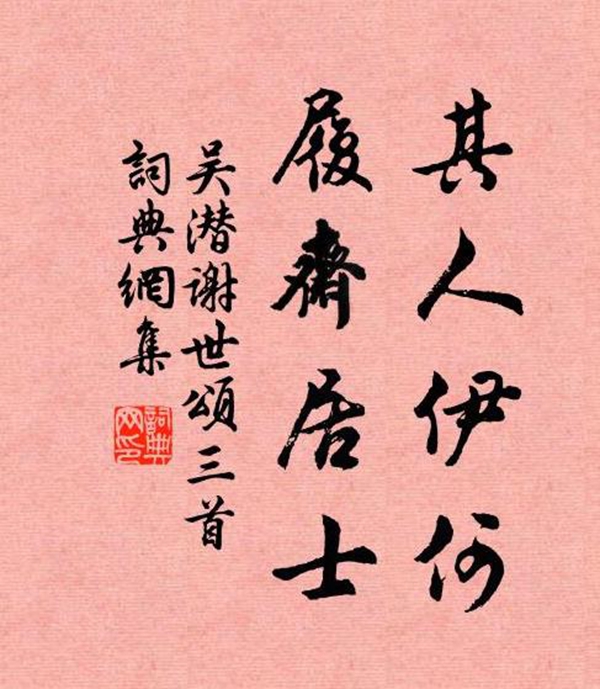 其人伊何
履齋居士
吴潛谢世頌三首
詞典網集
詞典
网印